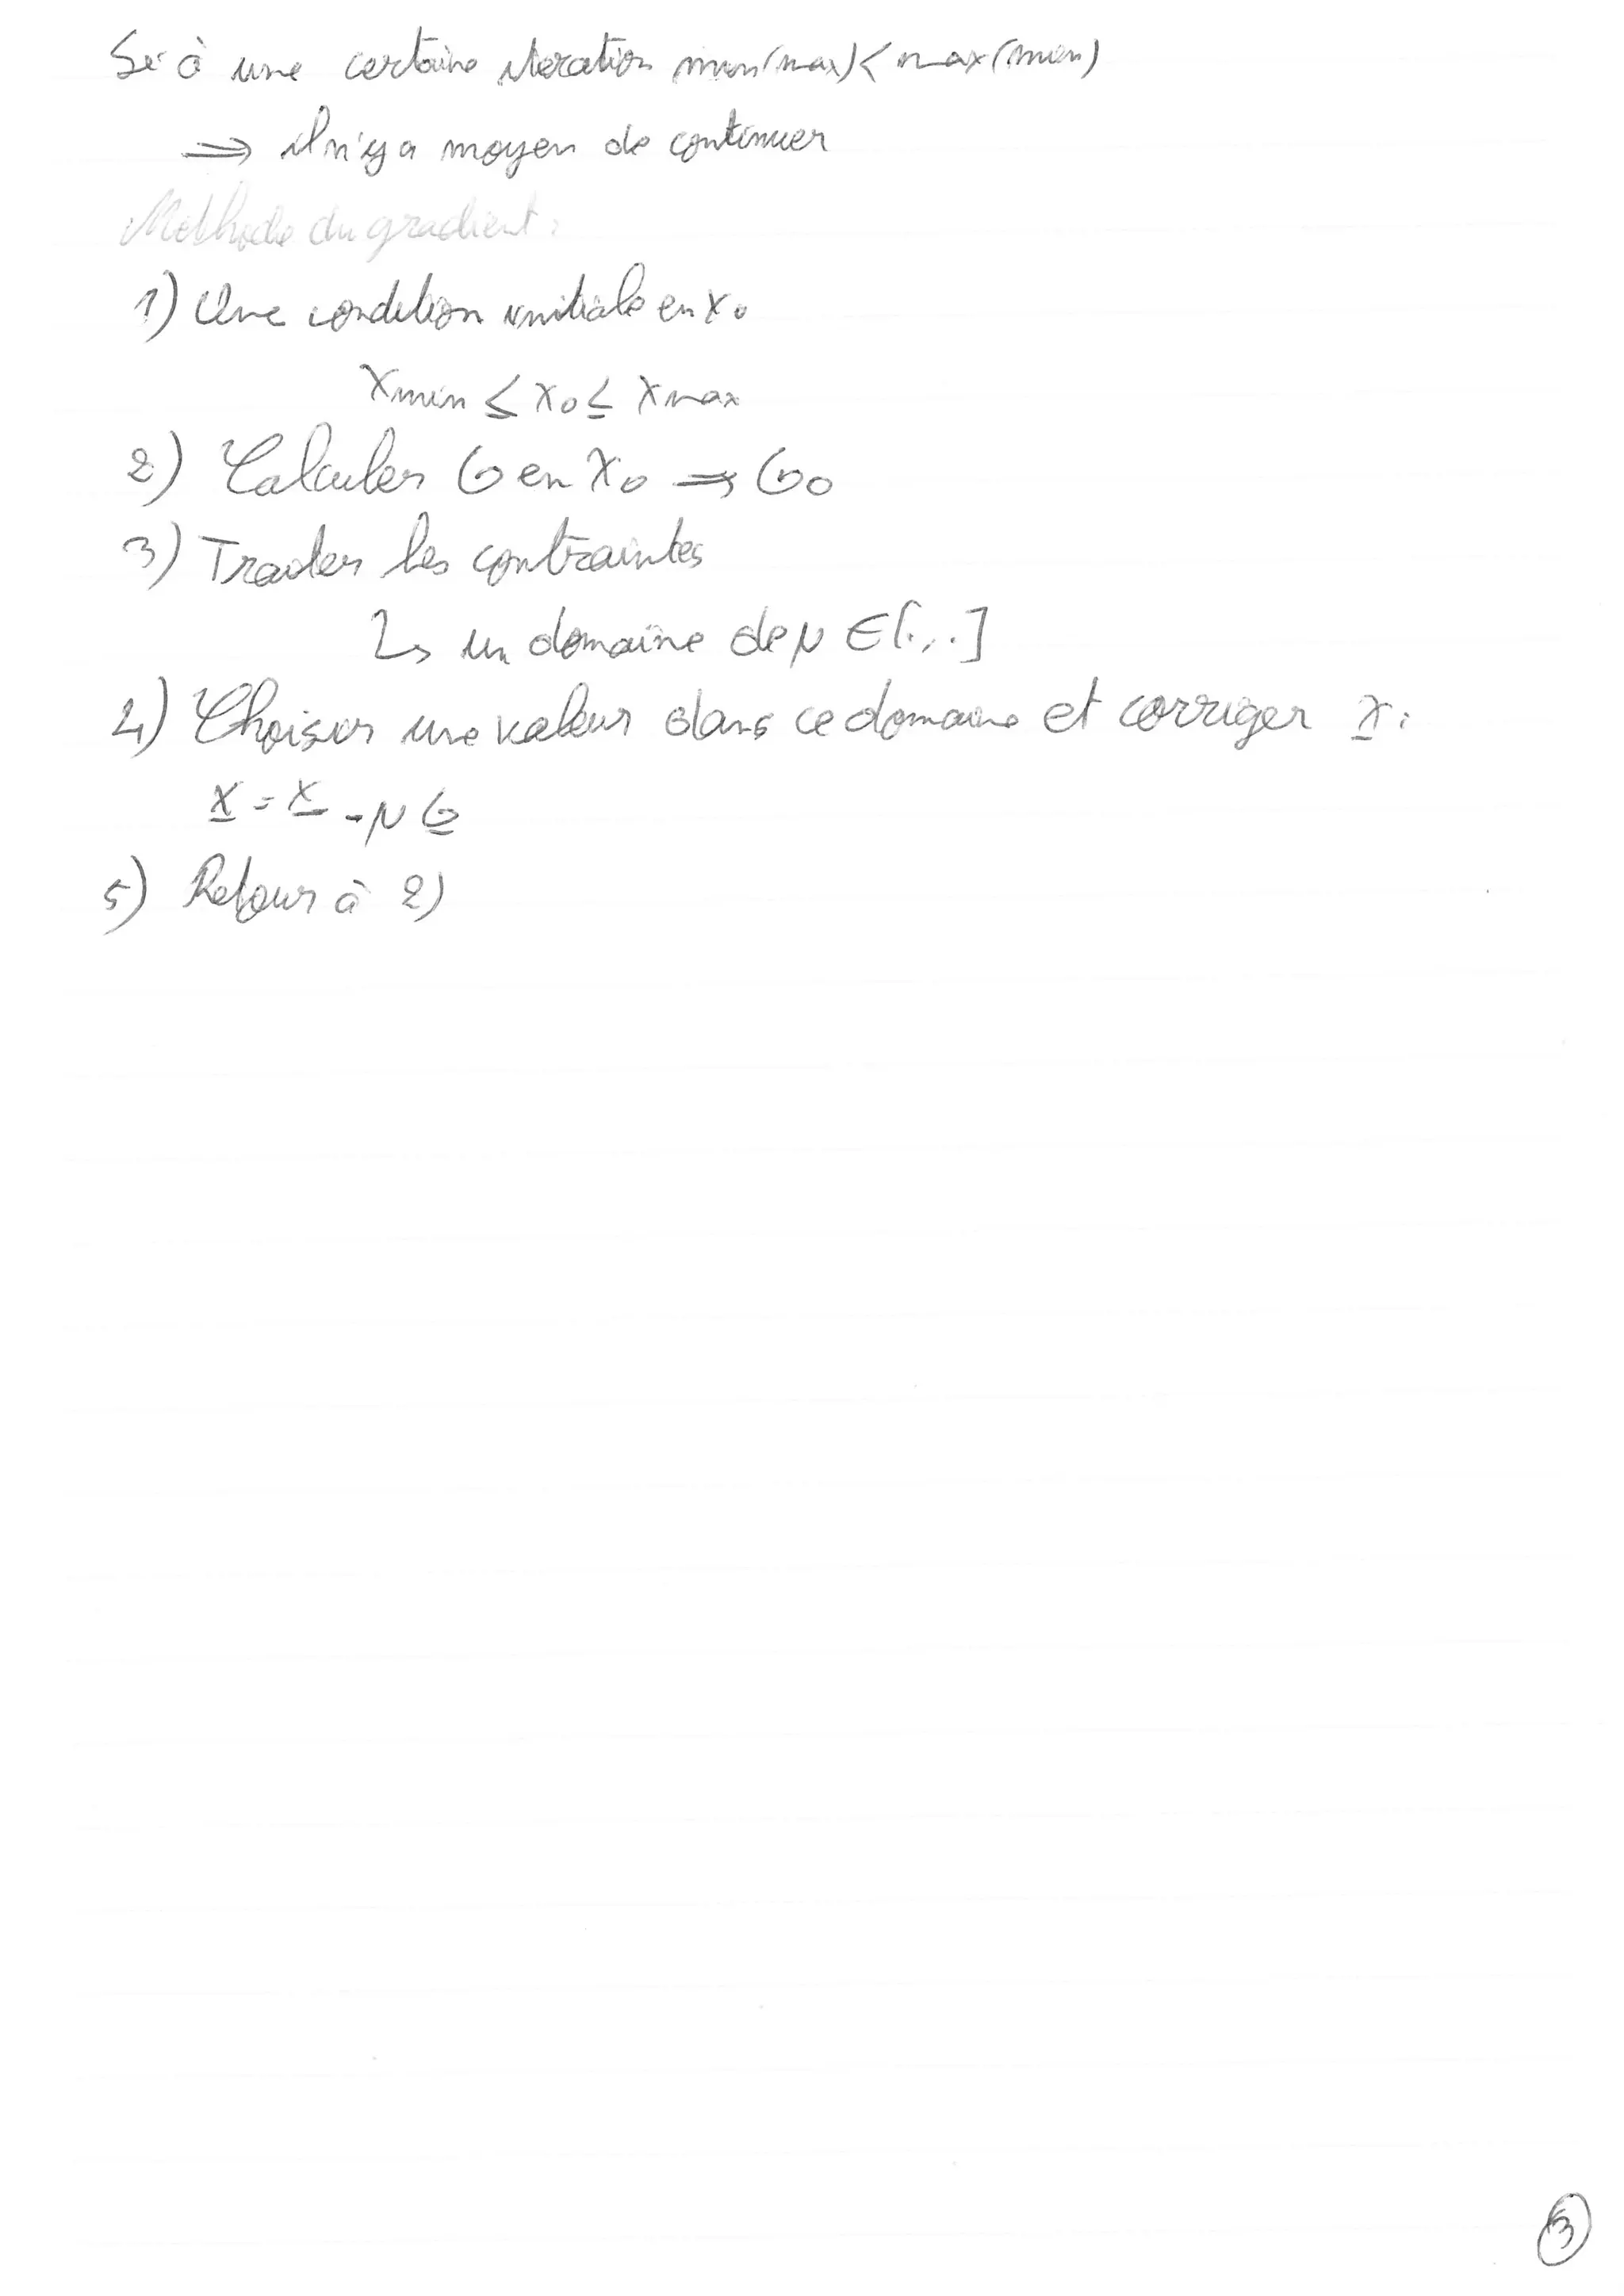 Si à une certaine iteration min(max) < max(min)
⇒ il n'y a moyen de continuer
Methode du gradient :
1) Une condition initiale en x₀
xmin ≤ x₀ ≤ xmax
2) Calculer G en x₀ ⇒ G₀
3) Traiter les contraintes
↳ un domaine de μ ∈ [.,.]
4) Choisir une valeur dans ce domaine et corriger x̲ :
x̲ = x̲ - μ G̲
5) Retour à 2)
3